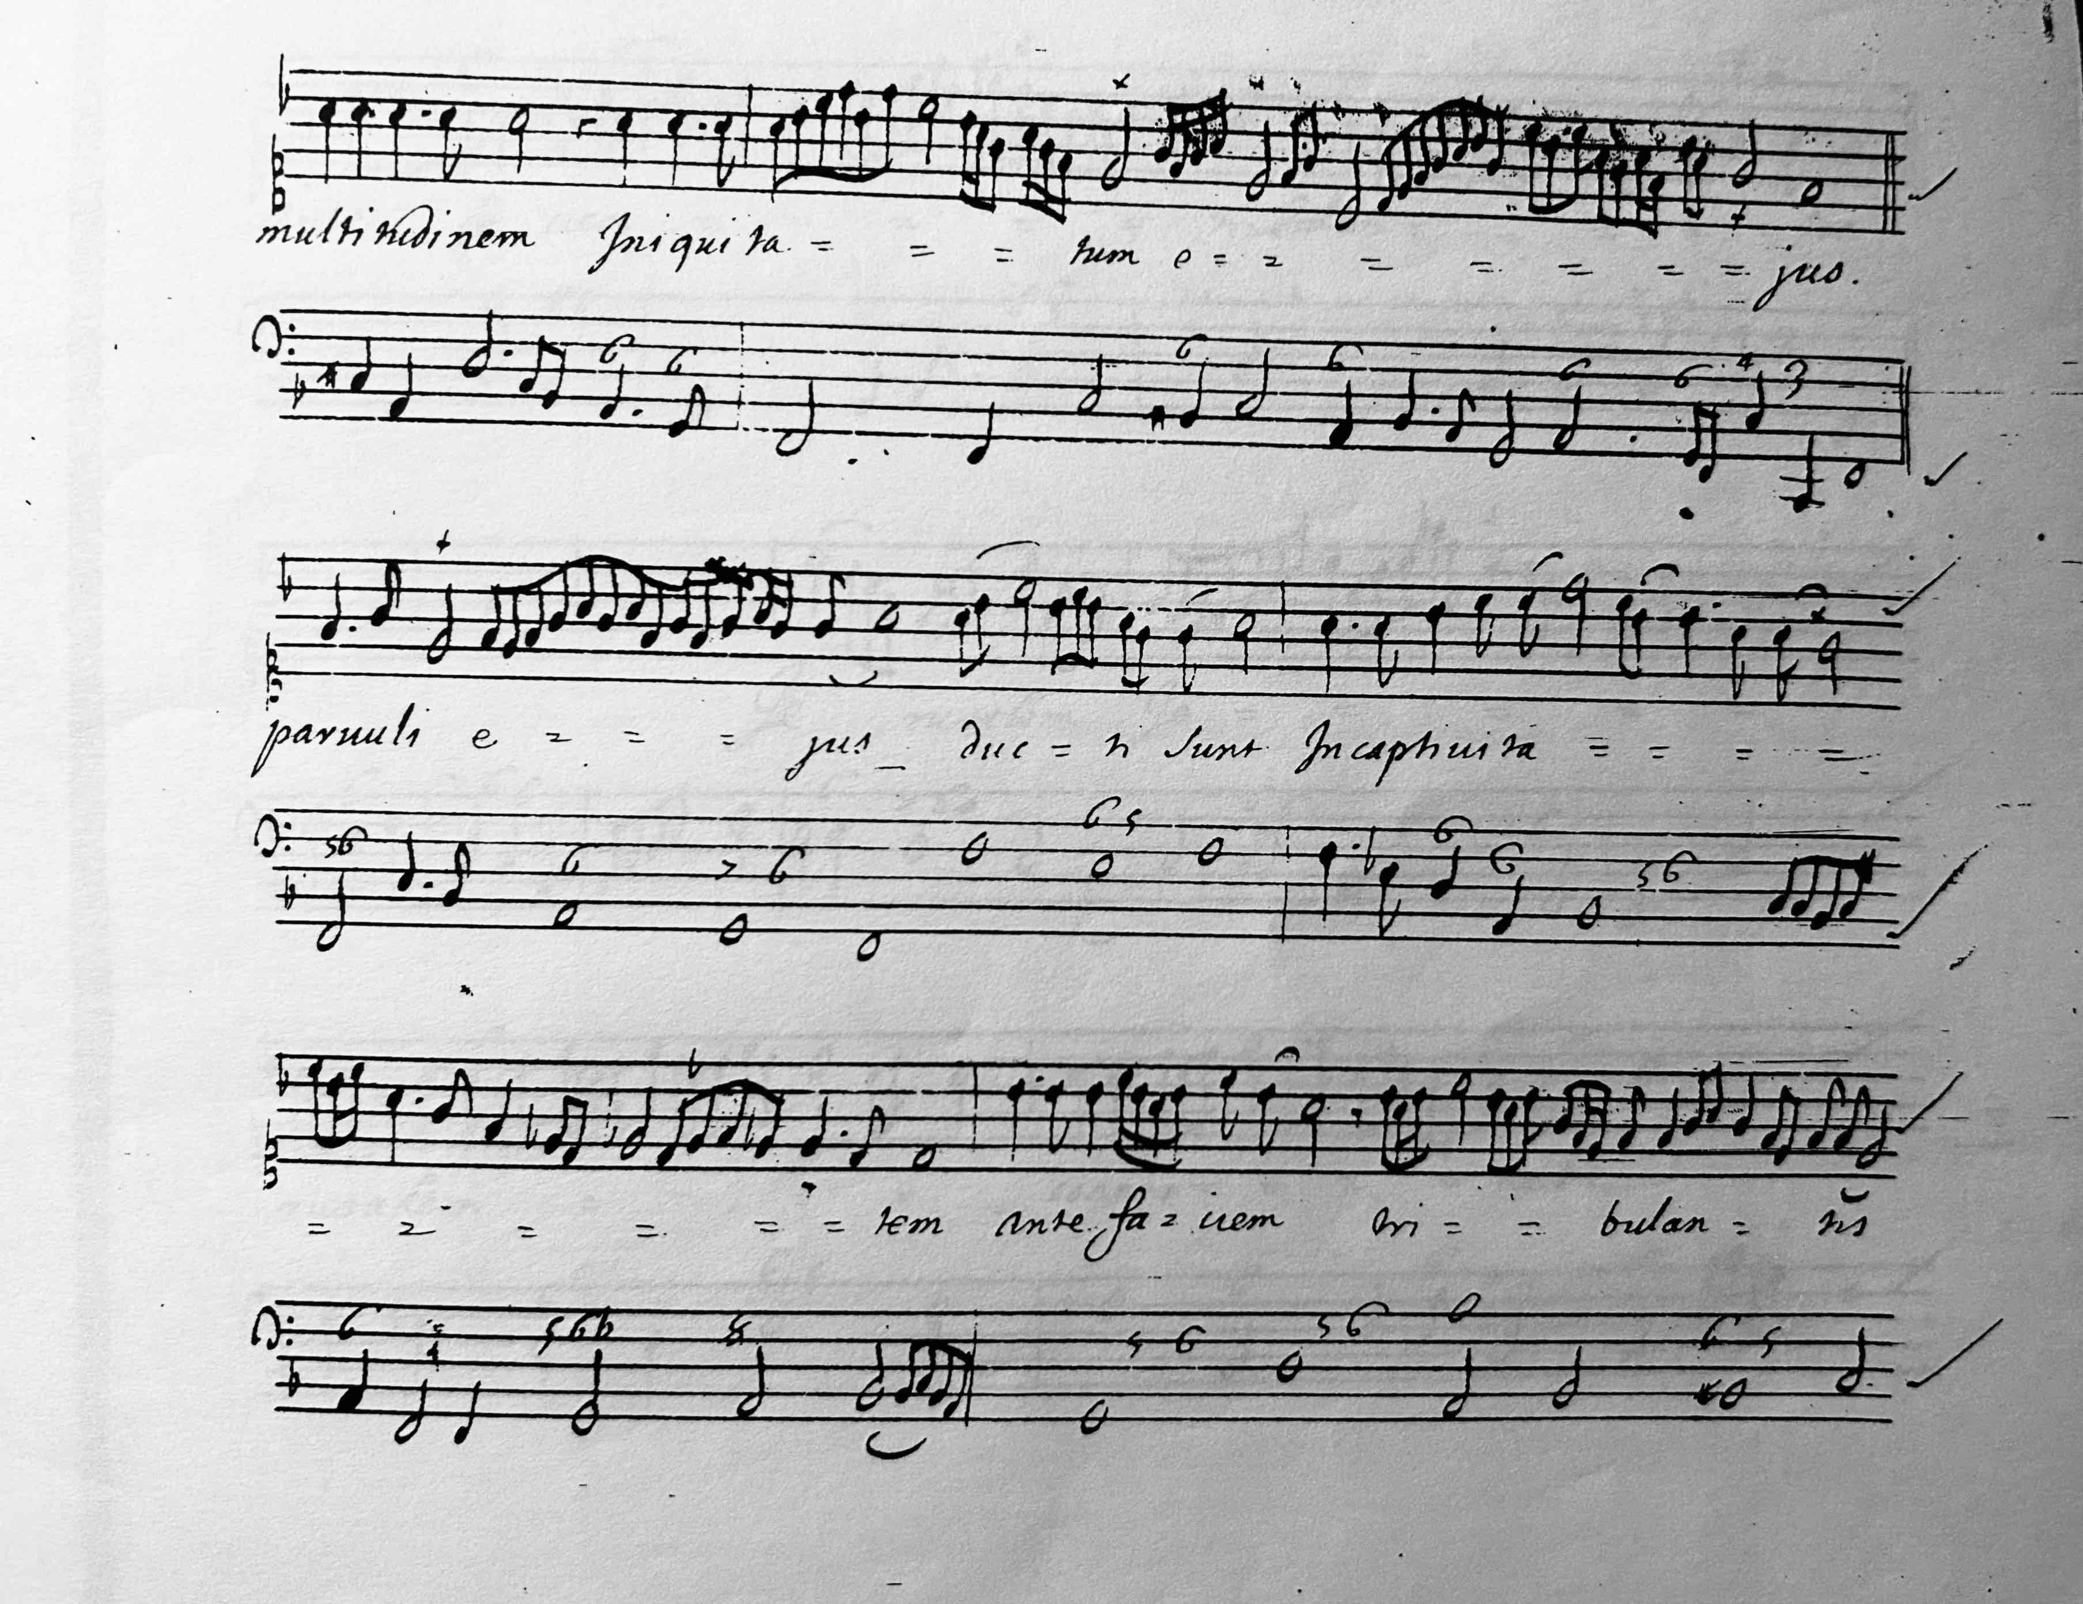 multitudinem Iniquita = = = tum e = = = = = = = jus.
6 6 6 6 6 6 4 3
parvuli e = = = jus duc = ti sunt Incaptivita = = = =
56 6 7 6 6 5 6 6 56
= = = = = = tem ante fa = ciem tri = = bulan = tis
6 5 6b 5 6 5 6 6 5